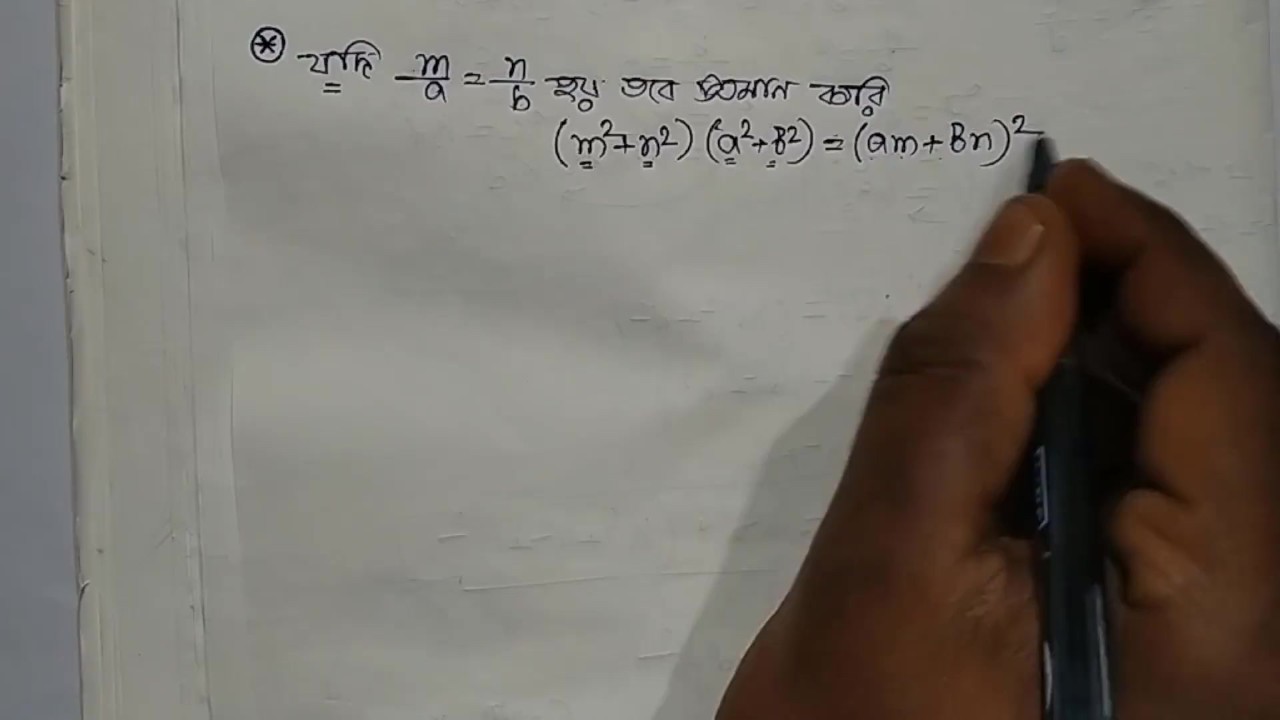 ⊛ যদি m/a = n/b হয় তবে প্রমান করি
(m²+n²) (a²+B²) = (am+Bn)²